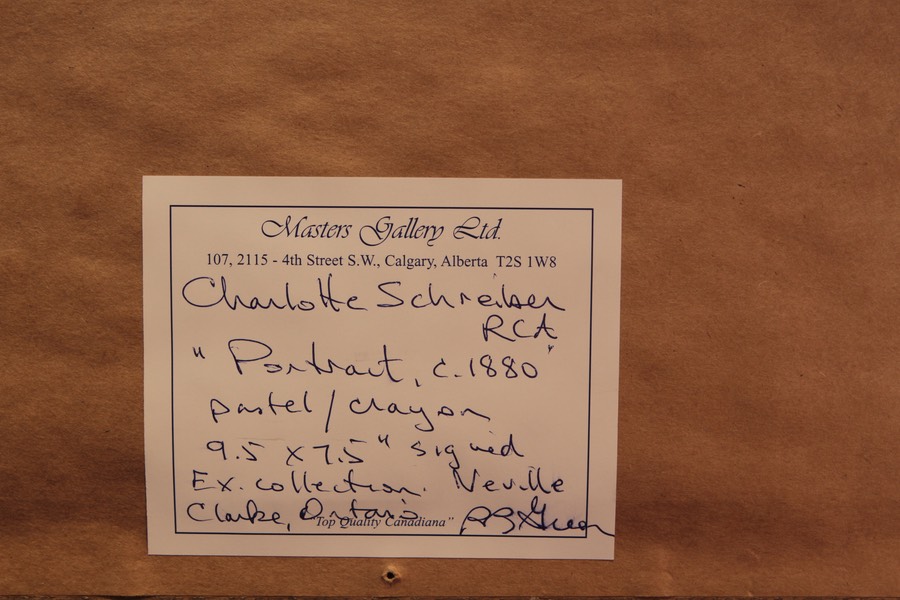 Masters Gallery Ltd.
107, 2115 - 4th Street S.W., Calgary, Alberta T2S 1W8
Charlotte Schreiber
RCA
"Portrait, c.1880"
pastel/crayon
9.5 x 7.5" signed
Ex. collection. Neville
Clarke, Ontario
"Top Quality Canadiana"